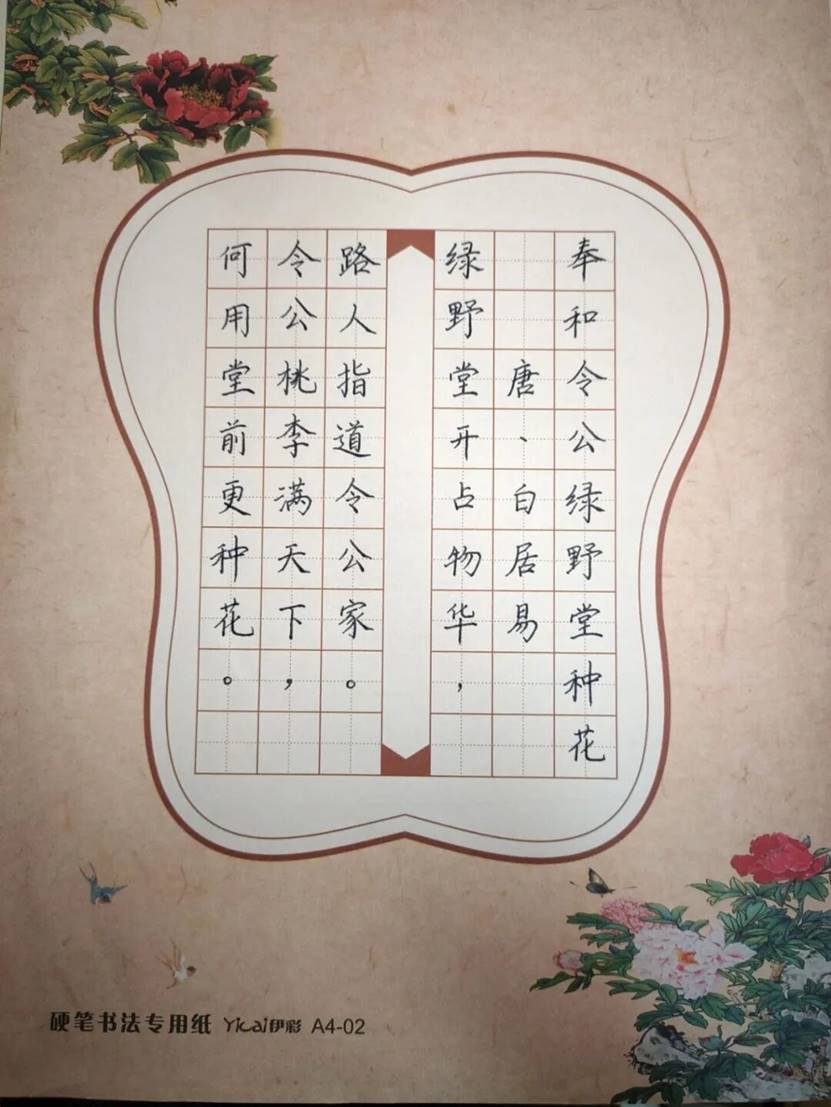 奉和令公绿野堂种花
唐、白居易
绿野堂开占物华，
路人指道令公家。
令公桃李满天下，
何用堂前更种花。
硬笔书法专用纸 Yicai伊彩 A4-02